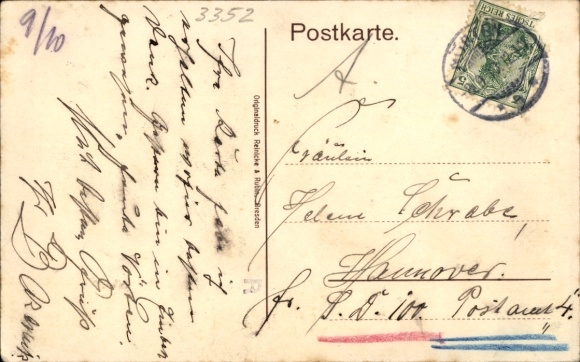 9/10
3352
Postkarte.
Ihre Karte habe ich
erhalten wofür besten
Dank. Gestern bin in
gewesen, heute
Mit besten Gruß
Ihr
Originaldruck Reinicke & Rubin, Dresden
TSCHES REICH
A.
Fräulein
Helene Schrabe,
Hannover.
fr. S. D. 100. Postamt 4.